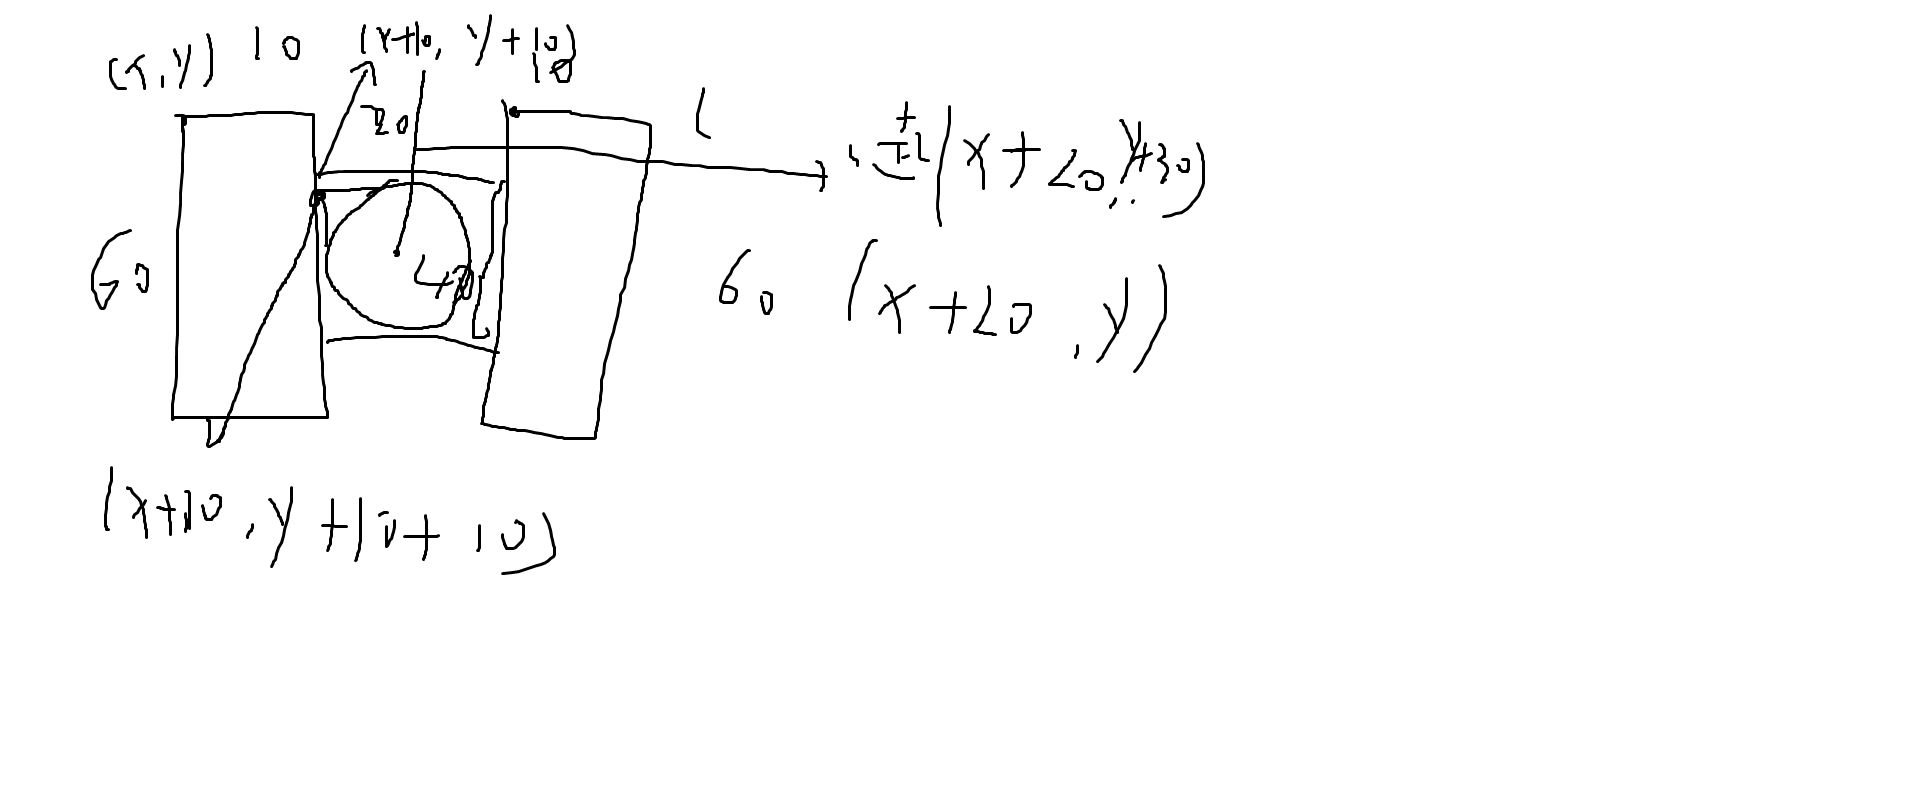 (x,y) 10 (x+10, y+10)
10
20
(x+20, y+30)
60 40 60 (x+20, y)
(x+10, y+10+10)